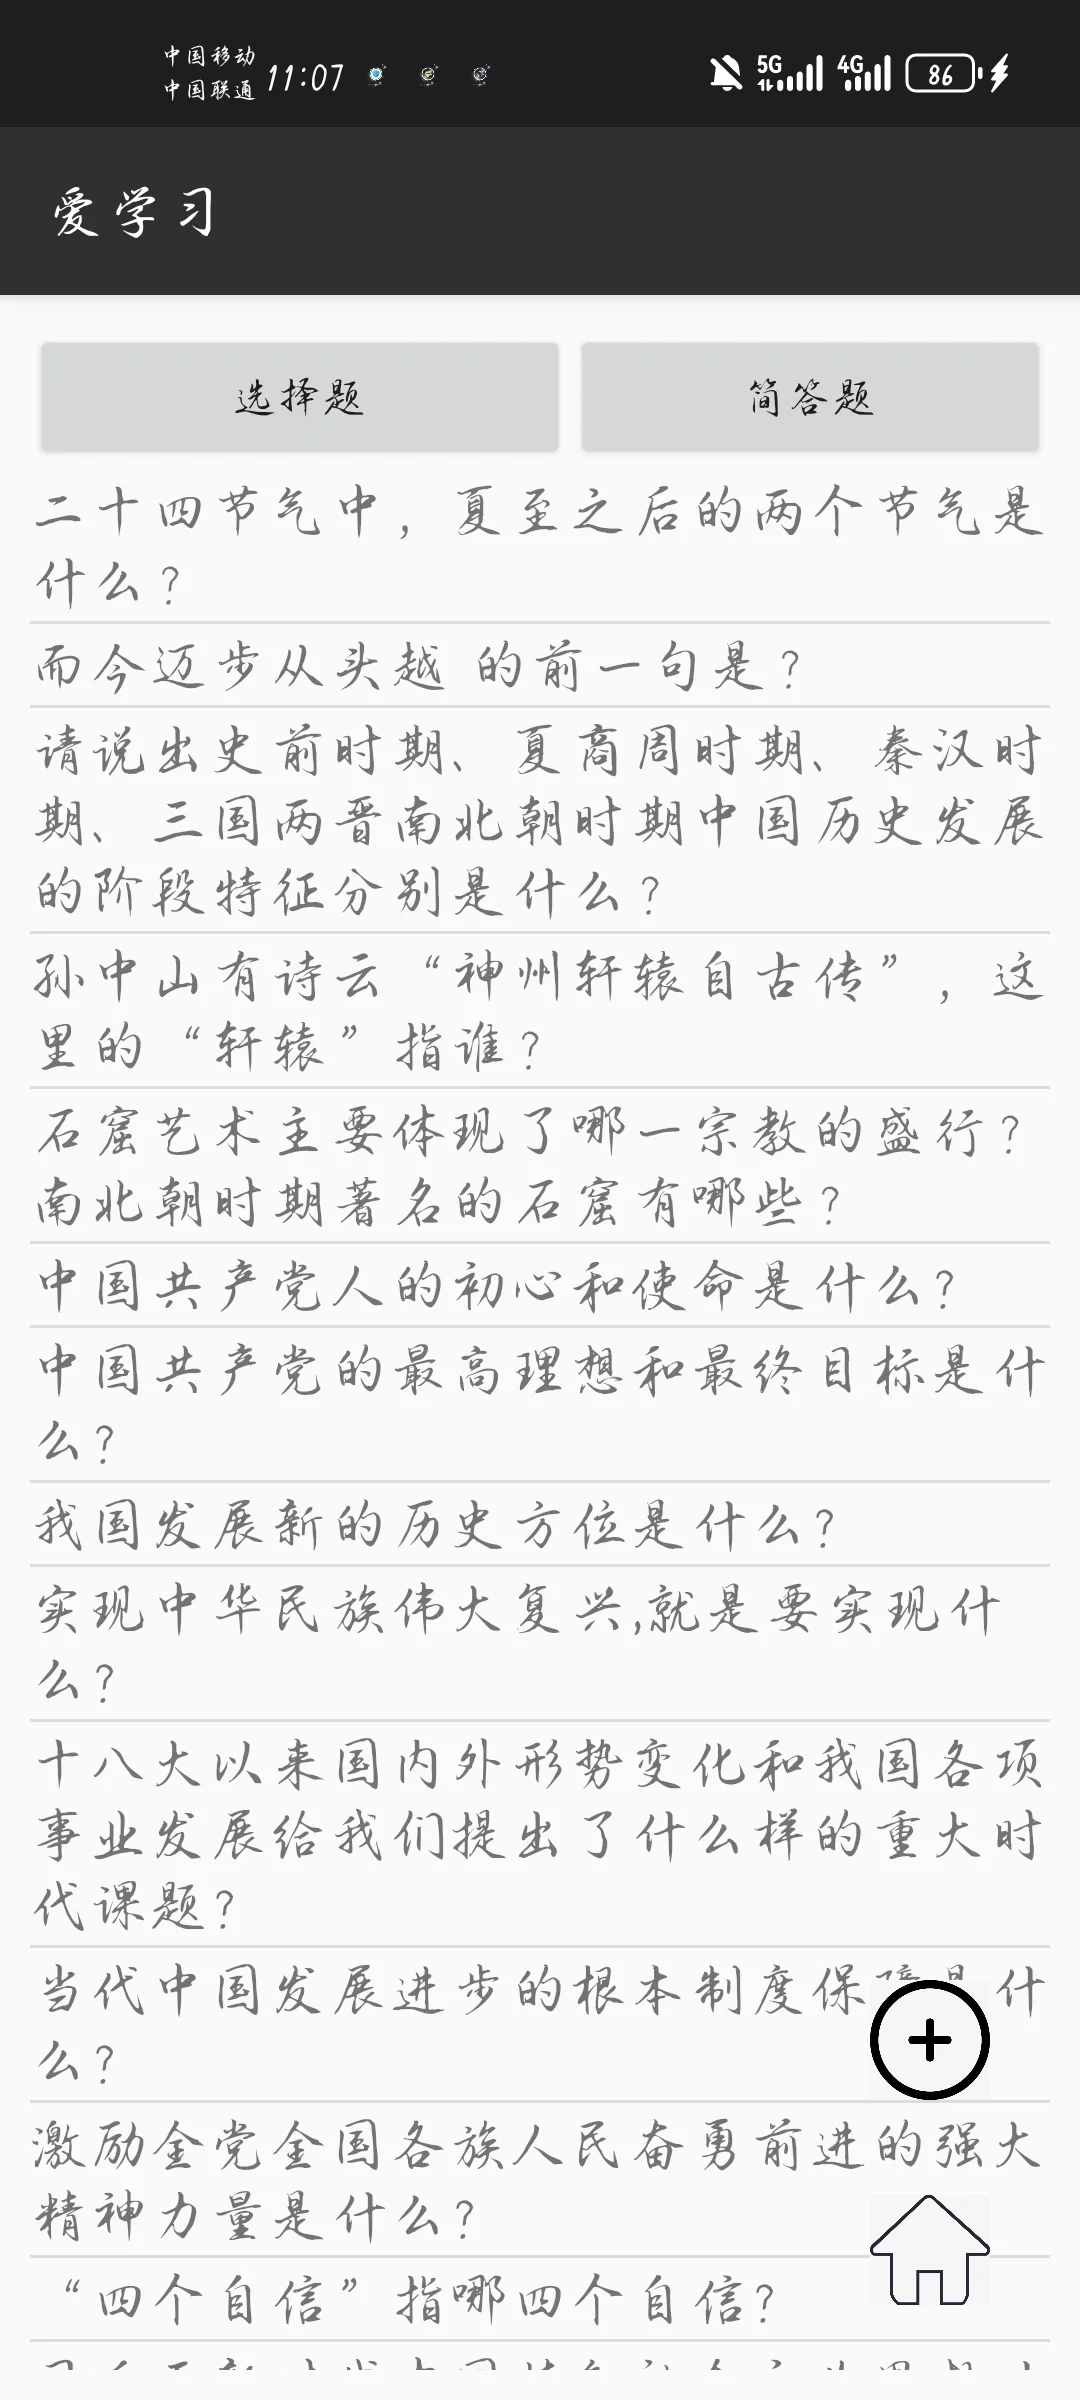 中国移动
中国联通 11:07 5G 4G 86
爱学习
选择题 简答题
二十四节气中，夏至之后的两个节气是
什么？
而今迈步从头越 的前一句是？
请说出史前时期、夏商周时期、秦汉时
期、三国两晋南北朝时期中国历史发展
的阶段特征分别是什么？
孙中山有诗云“神州轩辕自古传”，这
里的“轩辕”指谁？
石窟艺术主要体现了哪一宗教的盛行？
南北朝时期著名的石窟有哪些？
中国共产党人的初心和使命是什么？
中国共产党的最高理想和最终目标是什
么？
我国发展新的历史方位是什么？
实现中华民族伟大复兴,就是要实现什
么？
十八大以来国内外形势变化和我国各项
事业发展给我们提出了什么样的重大时
代课题？
当代中国发展进步的根本制度保障是什
么？
激励全党全国各族人民奋勇前进的强大
精神力量是什么？
“四个自信”指哪四个自信？